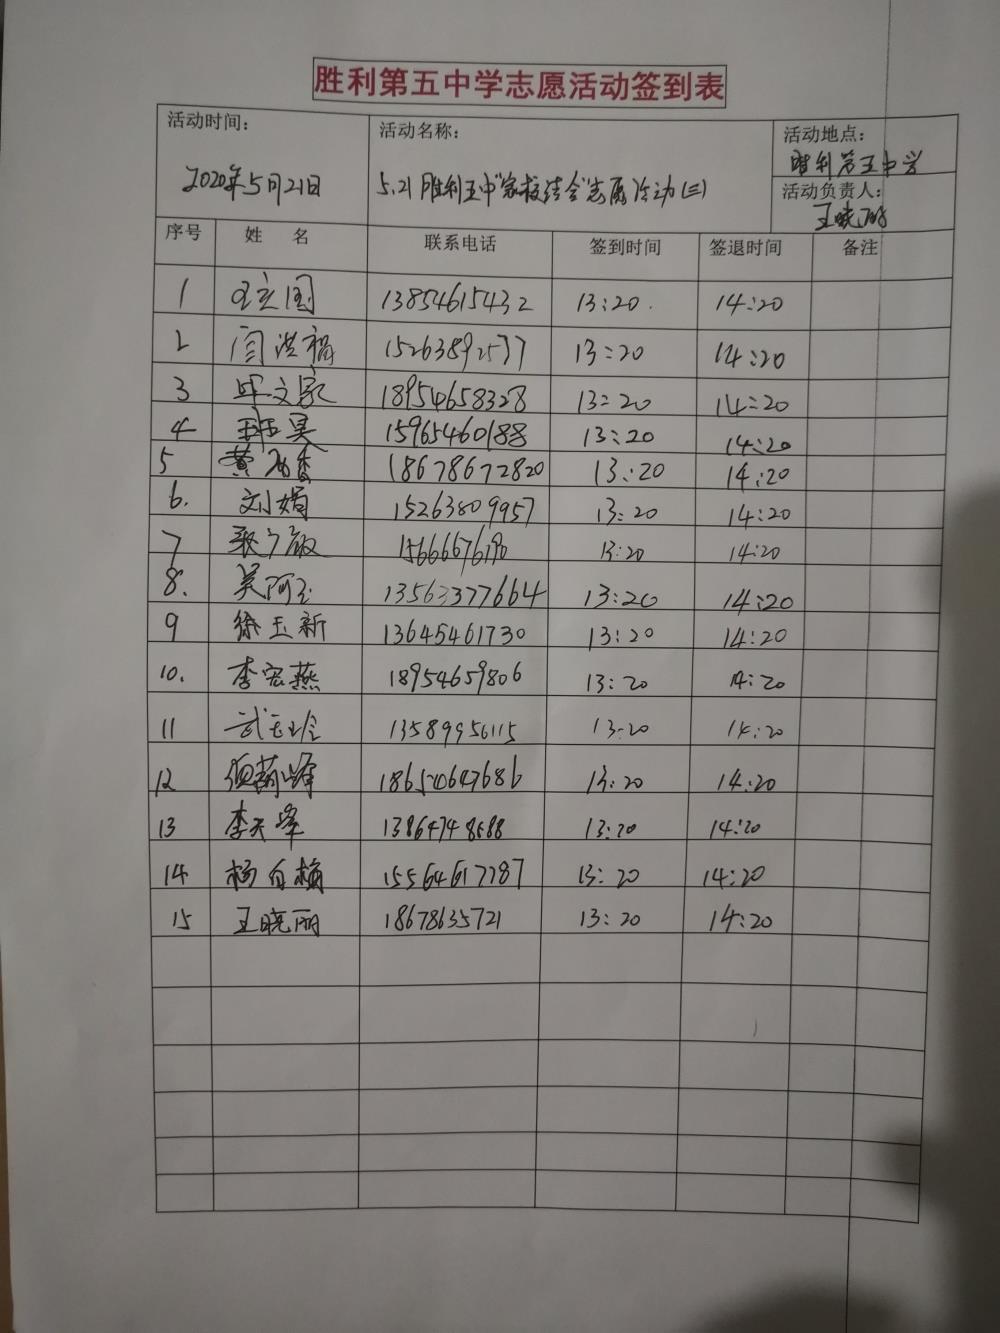 胜利第五中学志愿活动签到表
活动时间： 活动名称： 活动地点：
2020年5月21日 5.21胜利五中"家校结合"志愿活动(三) 胜利第五中学
活动负责人：
王晓丽
序号 姓 名 联系电话 签到时间 签退时间 备注
1 王立国 13854615432 13:20 14:20
2 闫洪福 15263892577 13:20 14:20
3 毕文家 18954658328 13:20 14:20
4 王玉昊 15965460188 13:20 14:20
5 黄 18678672820 13:20 14:20
6. 刘娟 15263809957 13:20 14:20
7 13:20 14:20
8. 吴阿玉 13563377664 13:20 14:20
9 徐玉新 13645461730 13:20 14:20
10. 李宏燕 18954659806 13:20 14:20
11 武玉玲 13589956115 13:20 14:20
12 13:20 14:20
13 李天峰 13:20 14:20
14 杨白梅 15564617787 13:20 14:20
15 王晓丽 18678635721 13:20 14:20